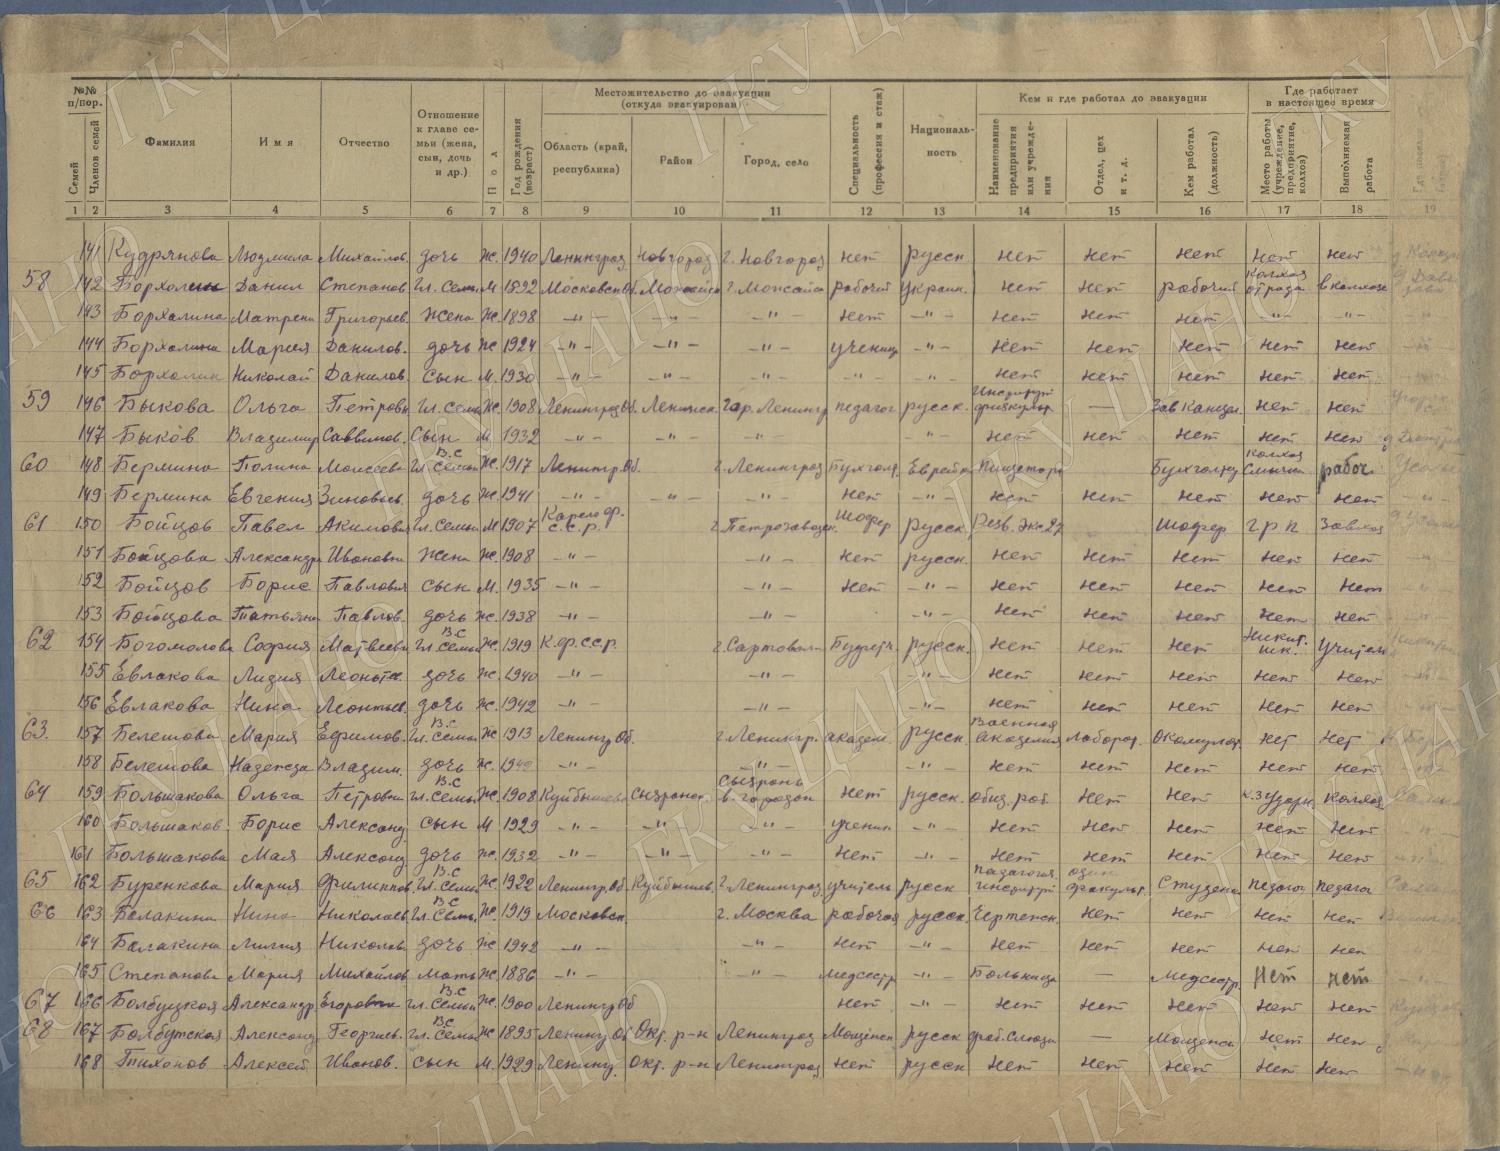 №№ п/пор.
Семей
Членов семей
Фамилия
Имя
Отчество
Отношение к главе семьи (жена, сын, дочь и др.)
Пол
Год рождения (возраст)
Местожительство до эвакуации (откуда эвакуирован)
Область (край, республика)
Район
Город, село
Специальность (профессия и стаж)
Националь-ность
Кем и где работал до эвакуации
Наименование предприятия или учреждения
Отдел, цех и т. д.
Кем работал (должность)
Где работает в настоящее время
Место работы (учреждение, предприятие, колхоз)
Выполняемая работа
1 2 3 4 5 6 7 8 9 10 11 12 13 14 15 16 17 18 19
141 Кудрянова Людмила Михайлов. дочь Ж. 1940 Ленинград. Новгород г. Новгород нет русск нет нет нет нет нет
58 142 Борхолин Данил Степанов Гл. семьи М 1892 Московск Об. Можайск г. Можайск рабочий украин. нет нет рабочий колхоз отрада в колхозе
143 Борхолина Матрена Григорьев. жена Ж. 1898 -"- -"- -"- нет -"- нет нет нет -"- -"-
144 Борхолина Мария Данилов. дочь Ж 1924 -"- -"- -"- учениц -"- нет нет нет нет нет
145 Борхолин Николай Данилов. сын М. 1930 -"- -"- -"- -"- -"- нет нет нет нет нет
59 146 Быкова Ольга Петровн Гл. семьи Ж. 1908 Ленинград Об. Ленинск. гор. Ленингр педагог русск. Институт физкульт — Зав Канцел. нет нет
147 Быков Владимир Саввинов. Сын М 1932 -"- -"- -"- -"- нет нет нет нет нет
60 148 Бермина Полина Моисеевн Гл семьи В.С Ж. 1917 Ленингр. Об. г. Ленинград Бухгал. Еврейка Пищеторг Бухгалтер колхоз Смычка рабоч
149 Бермина Евгения Зиновьев. дочь Ж 1941 -"- -"- -"- нет -"- нет нет нет нет нет
61 150 Бойцов Павел Акимович Гл. семьи М 1907 Карело ф. с.с.р. г. Петрозаводск. Шофер русск. Резв. Экс 27 Шофер г р п Завхоз
151 Бойцова Александра Ивановн Жена Ж. 1908 -"- -"- нет русск. нет нет нет нет нет
152 Бойцов Борис Павлович сын М. 1935 -"- -"- нет -"- нет нет нет нет нет
153 Бойцова Татьяна Павлов. дочь Ж. 1938 -"- -"- -"- нет нет нет нет нет
62 154 Богомолова София Матвеевн Гл. семьи В.С Ж. 1919 К.ф.сср. г. Сартовала Буфетч. русск. нет нет нет Никит. шк. Учитель
155 Евлакова Лидия Леонтьев. дочь Ж. 1940 -"- -"- -"- нет нет нет нет нет
156 Евлакова Нина Леонтьев. дочь Ж. 1942 -"- -"- -"- нет нет нет нет нет
63. 157 Белешова Мария Ефимов. Гл. семьи В.С Ж 1913 Ленингр Об. г. Ленингр. академ. русск. Военная академия Лаборат. нет нет
158 Белешова Надежда Владим. дочь Ж. 1942 -"- -"- нет нет нет нет нет
64 159 Большакова Ольга Петровн Гл. семьи В.С Ж. 1908 Куйбышев Сызранск Сызрань в. городок нет русск. общ. раб. нет нет к.з Ударн. колхоз
160 Большаков Борис Александ сын М 1929 -"- -"- -"- ученик -"- нет нет нет нет нет
161 Большакова Мая Александ дочь Ж. 1932 -"- -"- -"- нет -"- нет нет нет нет нет
65 162 Буренкова Мария Филиппов. Гл. семьи В.С Ж. 1922 Ленингр. Об. Куйбышев. г. Ленинград учитель русск педагогич институт один факульт. Студент педагог педагог
66 163 Балакина Нина Николаев Гл. семьи В.С Ж. 1919 Московск. г. Москва рабочая русск. Чертежн. нет нет нет нет
164 Балакина Лилия Николаев дочь Ж 1942 -"- -"- нет -"- нет нет нет нет нет
165 Степанова Мария Михайлов мать Ж 1886 -"- -"- медсестр -"- Больница — медсестр. нет нет
67 166 Болбуцкая Александр Егоровна гл. семьи В.С Ж. 1900 Ленингр Об нет -"- нет нет нет нет нет
68 167 Болбутская Александ Георгиев. гл. семьи В.С Ж 1895 Ленингр. Об Окт. р-н Ленинград русск фаб. Слюда — нет нет
168 Тихонов Алексей Иванов. сын М. 1929 Ленингр. Окт. р-н Ленинград нет русск нет нет нет нет нет
ГКУ ЦАНО